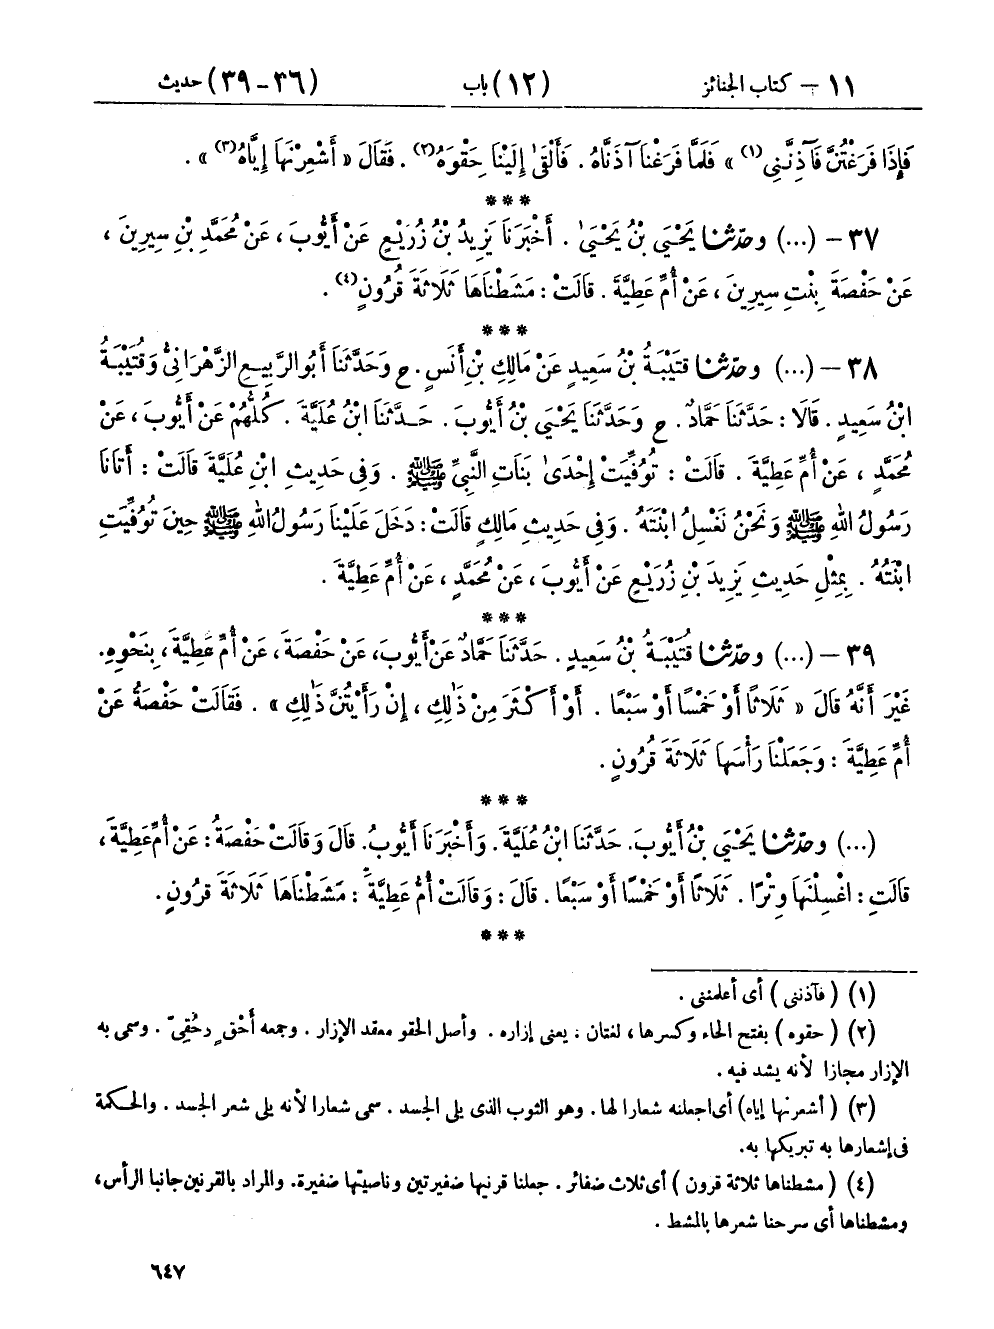 ١١ – كتاب الجنائز (١٢) باب (٣٦-٣٩) حديث
فَإِذَا فَرَغْتُنَّ فَآذِنَّنِي(١) » فَلَمَّا فَرَغْنَا آذَنَّاهُ . فَأَلْقَىٰ إِلَيْنَا حِقْوَهُ(٢) . فَقَالَ « أَشْعِرْنَهَا إِيَّاهُ(٣) » .
***
٣٧ – (...) وحدّثنا يَحْيَى بْنُ يَحْيَىٰ . أَخْبَرَنَا يَزِيدُ بْنُ زُرَيْعٍ عَنْ أَيُّوبَ ، عَنْ مُحَمَّدِ بْنِ سِيرِينَ ،
عَنْ حَفْصَةَ بِنْتِ سِيرِينَ ، عَنْ أُمِّ عَطِيَّةَ . قَالَتْ : مَشَطْنَاهَا ثَلَاثَةَ قُرُونٍ(٤) .
***
٣٨ – (...) وحدّثنا قُتَيْبَةُ بْنُ سَعِيدٍ عَنْ مَالِكِ بْنِ أَنَسٍ . ح وَحَدَّثَنَا أَبُو الرَّبِيعِ الزَّهْرَانِيُّ وَقُتَيْبَةُ
ابْنُ سَعِيدٍ . قَالَا : حَدَّثَنَا حَمَّادٌ . ح وَحَدَّثَنَا يَحْيَى بْنُ أَيُّوبَ . حَدَّثَنَا ابْنُ عُلَيَّةَ . كُلُّهُمْ عَنْ أَيُّوبَ ، عَنْ
مُحَمَّدٍ ، عَنْ أُمِّ عَطِيَّةَ . قَالَتْ : تُوُفِّيَتْ إِحْدَىٰ بَنَاتِ النَّبِيِّ ﷺ . وَفِي حَدِيثِ ابْنِ عُلَيَّةَ قَالَتْ : أَتَانَا
رَسُولُ اللهِ ﷺ وَنَحْنُ نَغْسِلُ ابْنَتَهُ . وَفِي حَدِيثِ مَالِكٍ قَالَتْ : دَخَلَ عَلَيْنَا رَسُولُ اللهِ ﷺ حِينَ تُوُفِّيَتِ
ابْنَتُهُ . بِمِثْلِ حَدِيثِ يَزِيدَ بْنِ زُرَيْعٍ عَنْ أَيُّوبَ ، عَنْ مُحَمَّدٍ ، عَنْ أُمِّ عَطِيَّةَ .
***
٣٩ – (...) وحدّثنا قُتَيْبَةُ بْنُ سَعِيدٍ . حَدَّثَنَا حَمَّادٌ عَنْ أَيُّوبَ ، عَنْ حَفْصَةَ ، عَنْ أُمِّ عَطِيَّةَ ، بِنَحْوِهِ .
غَيْرَ أَنَّهُ قَالَ « ثَلَاثًا أَوْ خَمْسًا أَوْ سَبْعًا . أَوْ أَكْثَرَ مِنْ ذَٰلِكِ ، إِنْ رَأَيْتُنَّ ذَٰلِكِ » . فَقَالَتْ حَفْصَةُ عَنْ
أُمِّ عَطِيَّةَ : وَجَعَلْنَا رَأْسَهَا ثَلَاثَةَ قُرُونٍ .
***
(...) وحدّثنا يَحْيَى بْنُ أَيُّوبَ . حَدَّثَنَا ابْنُ عُلَيَّةَ . وَأَخْبَرَنَا أَيُّوبُ . قَالَ وَقَالَتْ حَفْصَةُ : عَنْ أُمِّ عَطِيَّةَ ،
قَالَتِ : اغْسِلْنَهَا وِتْرًا . ثَلَاثًا أَوْ خَمْسًا أَوْ سَبْعًا . قَالَ : وَقَالَتْ أُمُّ عَطِيَّةَ : مَشَطْنَاهَا ثَلَاثَةَ قُرُونٍ .
***
(١) ( فآذننى ) أى أعلمننى .
(٢) ( حقوه ) بفتح الحاء وكسرها ، لغتان . يعنى إزاره . وأصل الحقو معقد الإزار . وجمعه أَحْقٍ وحُقِيّ . وسمى به
الإزار مجازا لأنه يشد فيه .
(٣) ( أشعرنها إياه ) أى اجعلنه شعارا لها . وهو الثوب الذى يلى الجسد . سمى شعارا لأنه يلى شعر الجسد . والحكمة
فى إشعارها به تبريكها به .
(٤) ( مشطناها ثلاثة قرون ) أى ثلاث ضفائر . جعلنا قرنيها ضفيرتين وناصيتها ضفيرة . والمراد بالقرنين جانبا الرأس ،
ومشطناها أى سرحنا شعرها بالمشط .
٦٤٧